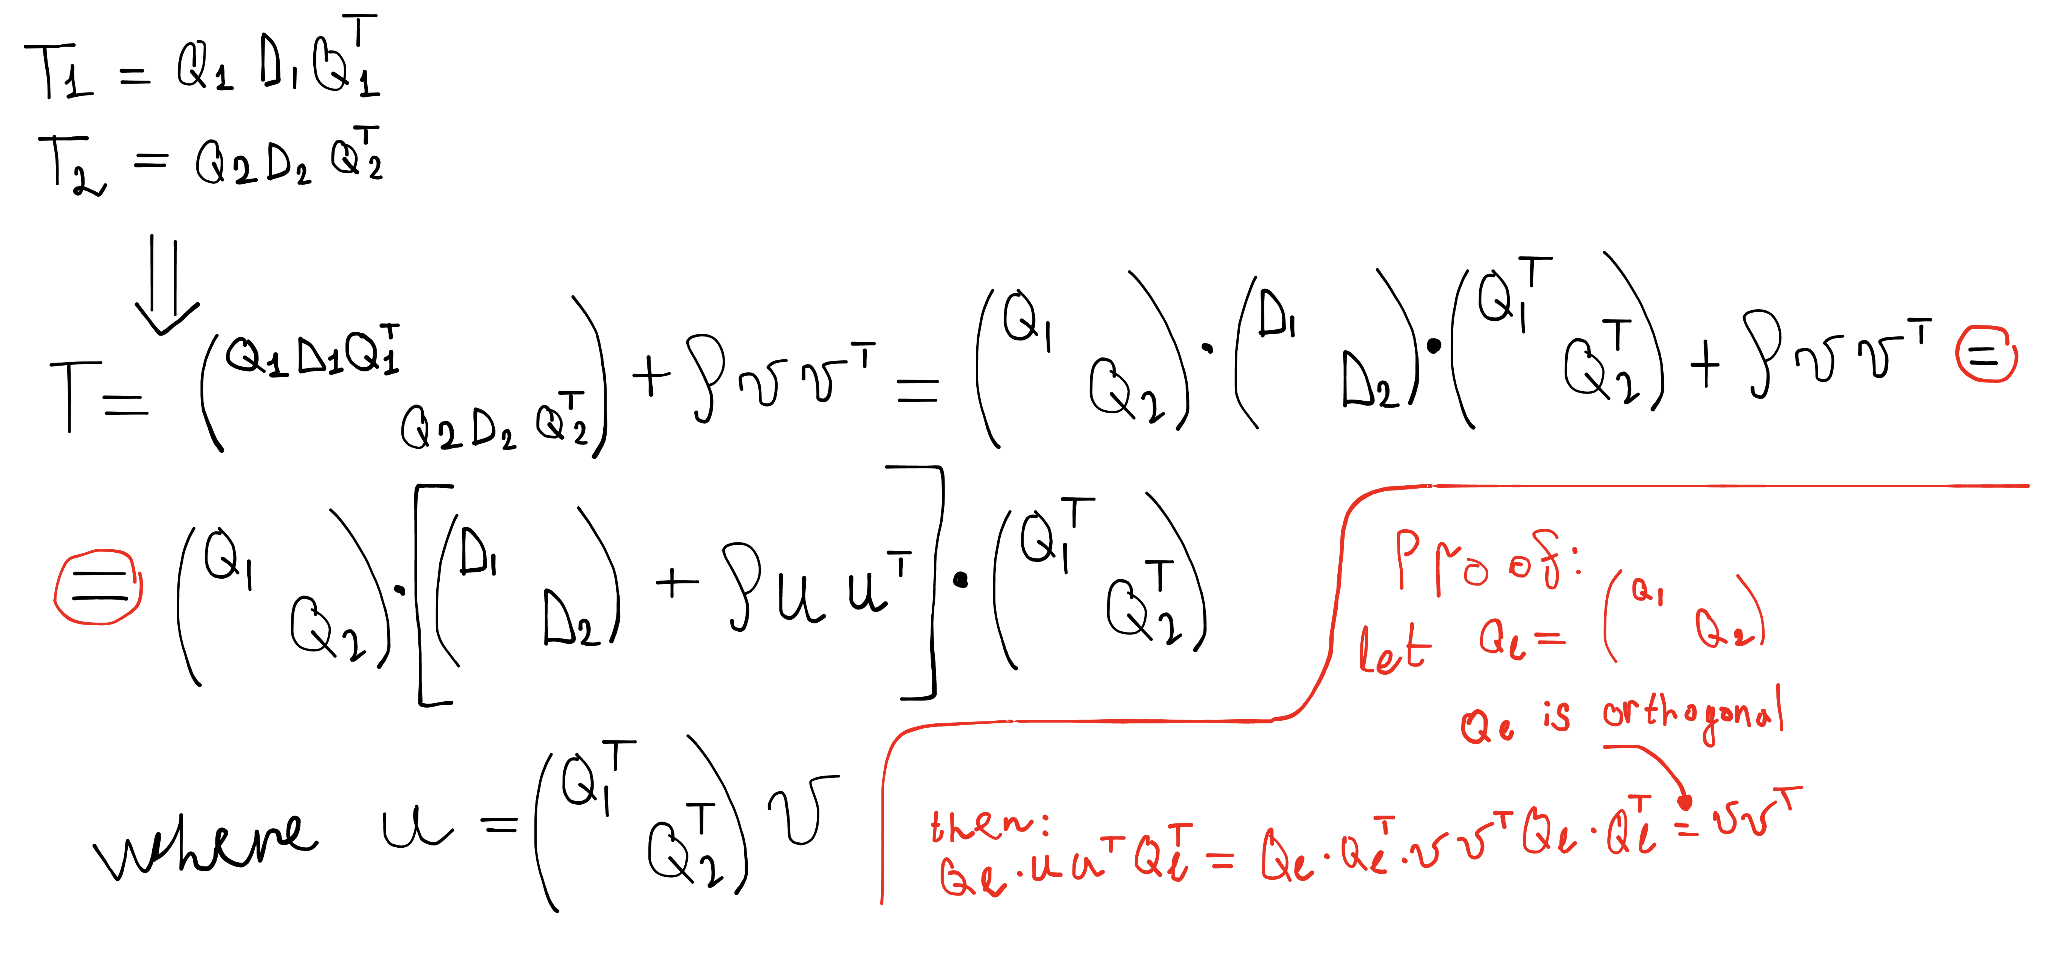 T₁ = Q₁ D₁ Q₁ᵀ
T₂ = Q₂ D₂ Q₂ᵀ
⇓
T = (Q₁D₁Q₁ᵀ   Q₂D₂Q₂ᵀ) + ρvvᵀ = (Q₁   Q₂)·(D₁   D₂)·(Q₁ᵀ   Q₂ᵀ) + ρvvᵀ =
= (Q₁   Q₂)·[(D₁   D₂) + ρuuᵀ]·(Q₁ᵀ   Q₂ᵀ)
where u = (Q₁ᵀ   Q₂ᵀ) v
Proof:
let Qℓ = (Q₁   Q₂)
Qℓ is orthogonal
then:
Qℓ·uuᵀQℓᵀ = Qℓ·Qℓᵀ·vvᵀQℓ·Qℓᵀ = vvᵀ